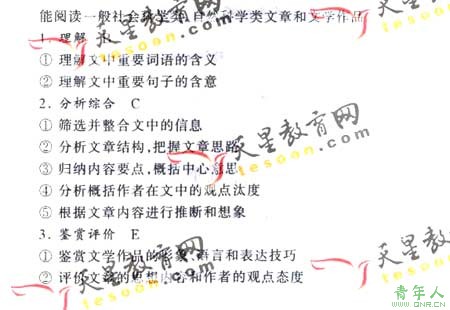 能阅读一般社会科学类、自然科学类文章和文学作品
1. 理解 B
① 理解文中重要词语的含义
② 理解文中重要句子的含意
2. 分析综合 C
① 筛选并整合文中的信息
② 分析文章结构,把握文章思路
③ 归纳内容要点,概括中心意思
④ 分析概括作者在文中的观点态度
⑤ 根据文章内容进行推断和想象
3. 鉴赏评价 E
① 鉴赏文学作品的形象、语言和表达技巧
② 评价文章的思想内容和作者的观点态度
天星教育网
tesoon.com
天星教育网
tesoon.com
天星教育网
tesoon.com
天星教育网
tesoon.com
青年人
www.QNR.CN